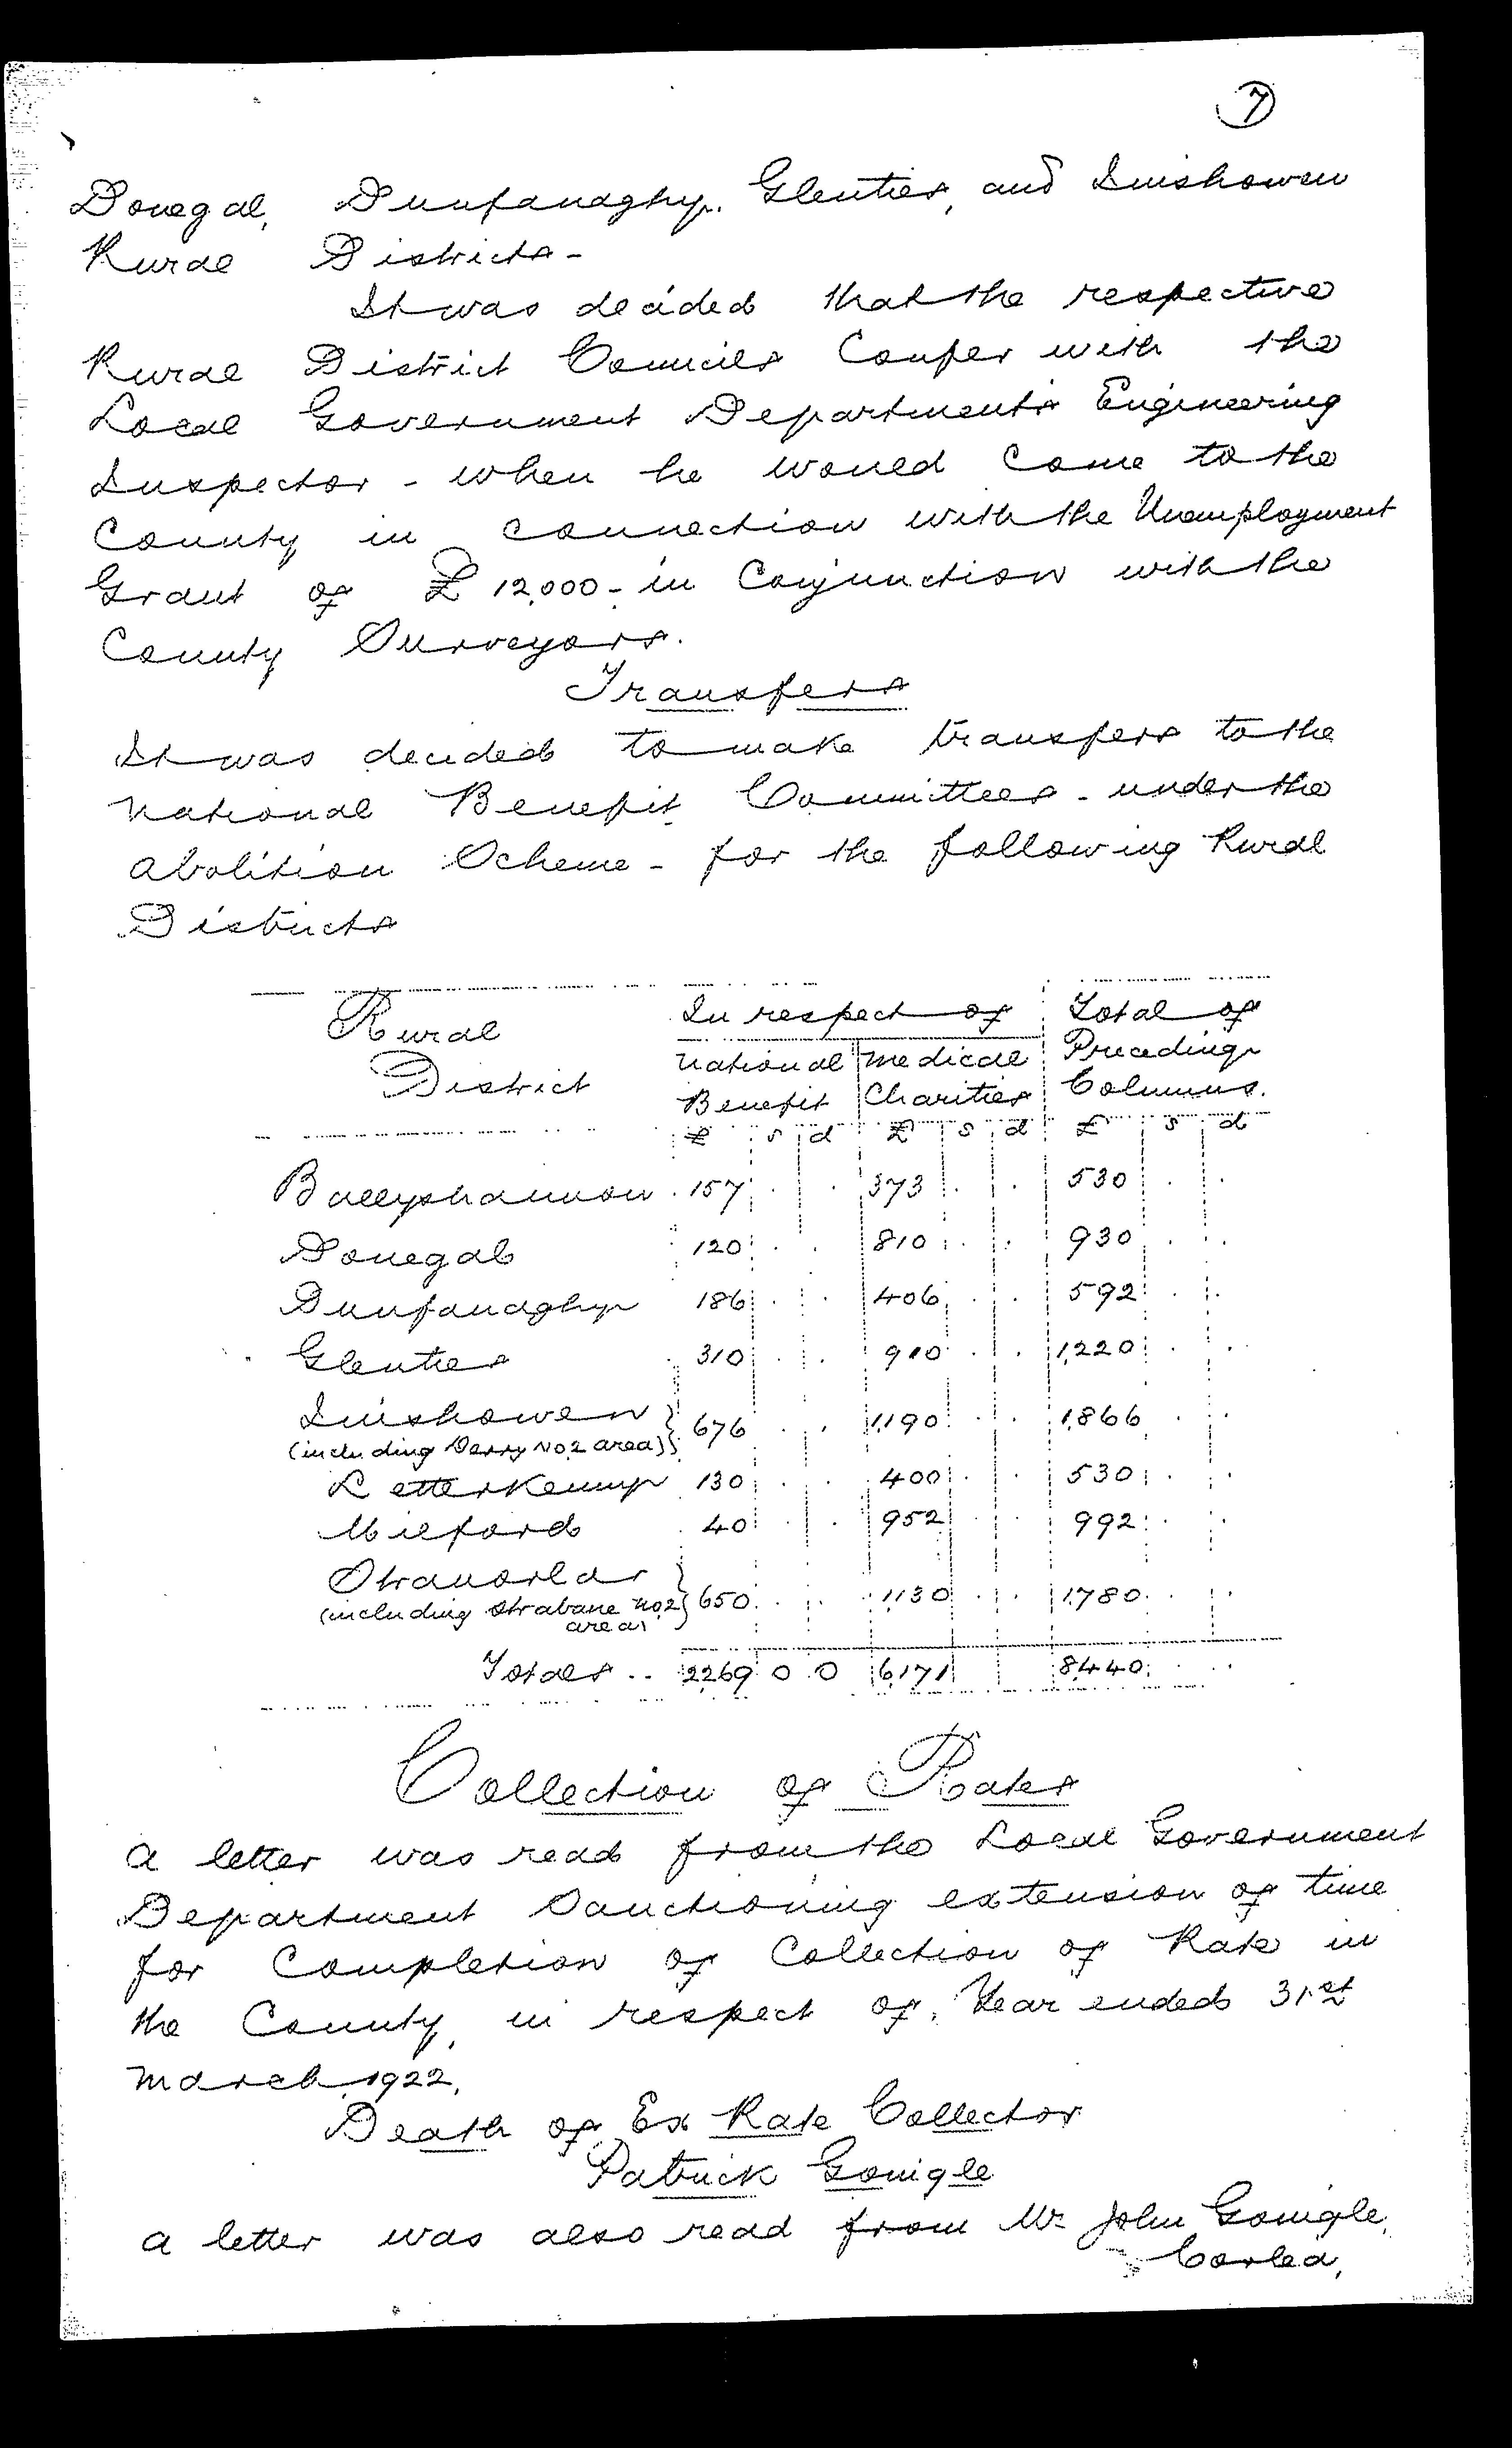 7
Donegal, Dunfanaghy, Glenties, and Inishowen
Rural Districts -
It was decided that the respective
Rural District Councils Confer with the
Local Government Departments Engineering
Inspector - when he would come to the
County in connection with the Unemployment
Grant of £12,000 - in Conjunction with the
County Surveyors.
Transfers
It was decided to make transfers to the
National Benefit Committees - under the
Abolition Scheme - for the following Rural
Districts
Rural In respect of Total of
District National Medical Preceding
Benefit Charities Columns.
£ s d £ s d £ s d
Ballyshannon . 157 . . 373 . . 530 . .
Donegal 120 . . 810 . . 930 . .
Dunfanaghy 186 . . 406 . . 592 . .
Glenties 310 . . 910 . . 1,220 . .
Inishowen } 676 . . 1,190 . . 1,866 . .
(including Derry No 2 area) }
Letterkenny 130 . . 400 . . 530 . .
Milford 40 . . 952 . . 992 . .
Stranorlar }
(including Strabane No 2 } 650 . . 1,130 . . 1,780 . .
area)
Totals .. 2,269 0 0 6,171 8,440 . .
Collection of Rates
A letter was read from the Local Government
Department Sanctioning extension of time
for Completion of Collection of Rate in
the County, in respect of Year ended 31st
March 1922.
Death of Ex Rate Collector
Patrick Gonigle
A letter was also read from Mr John Gonigle,
Corlea,